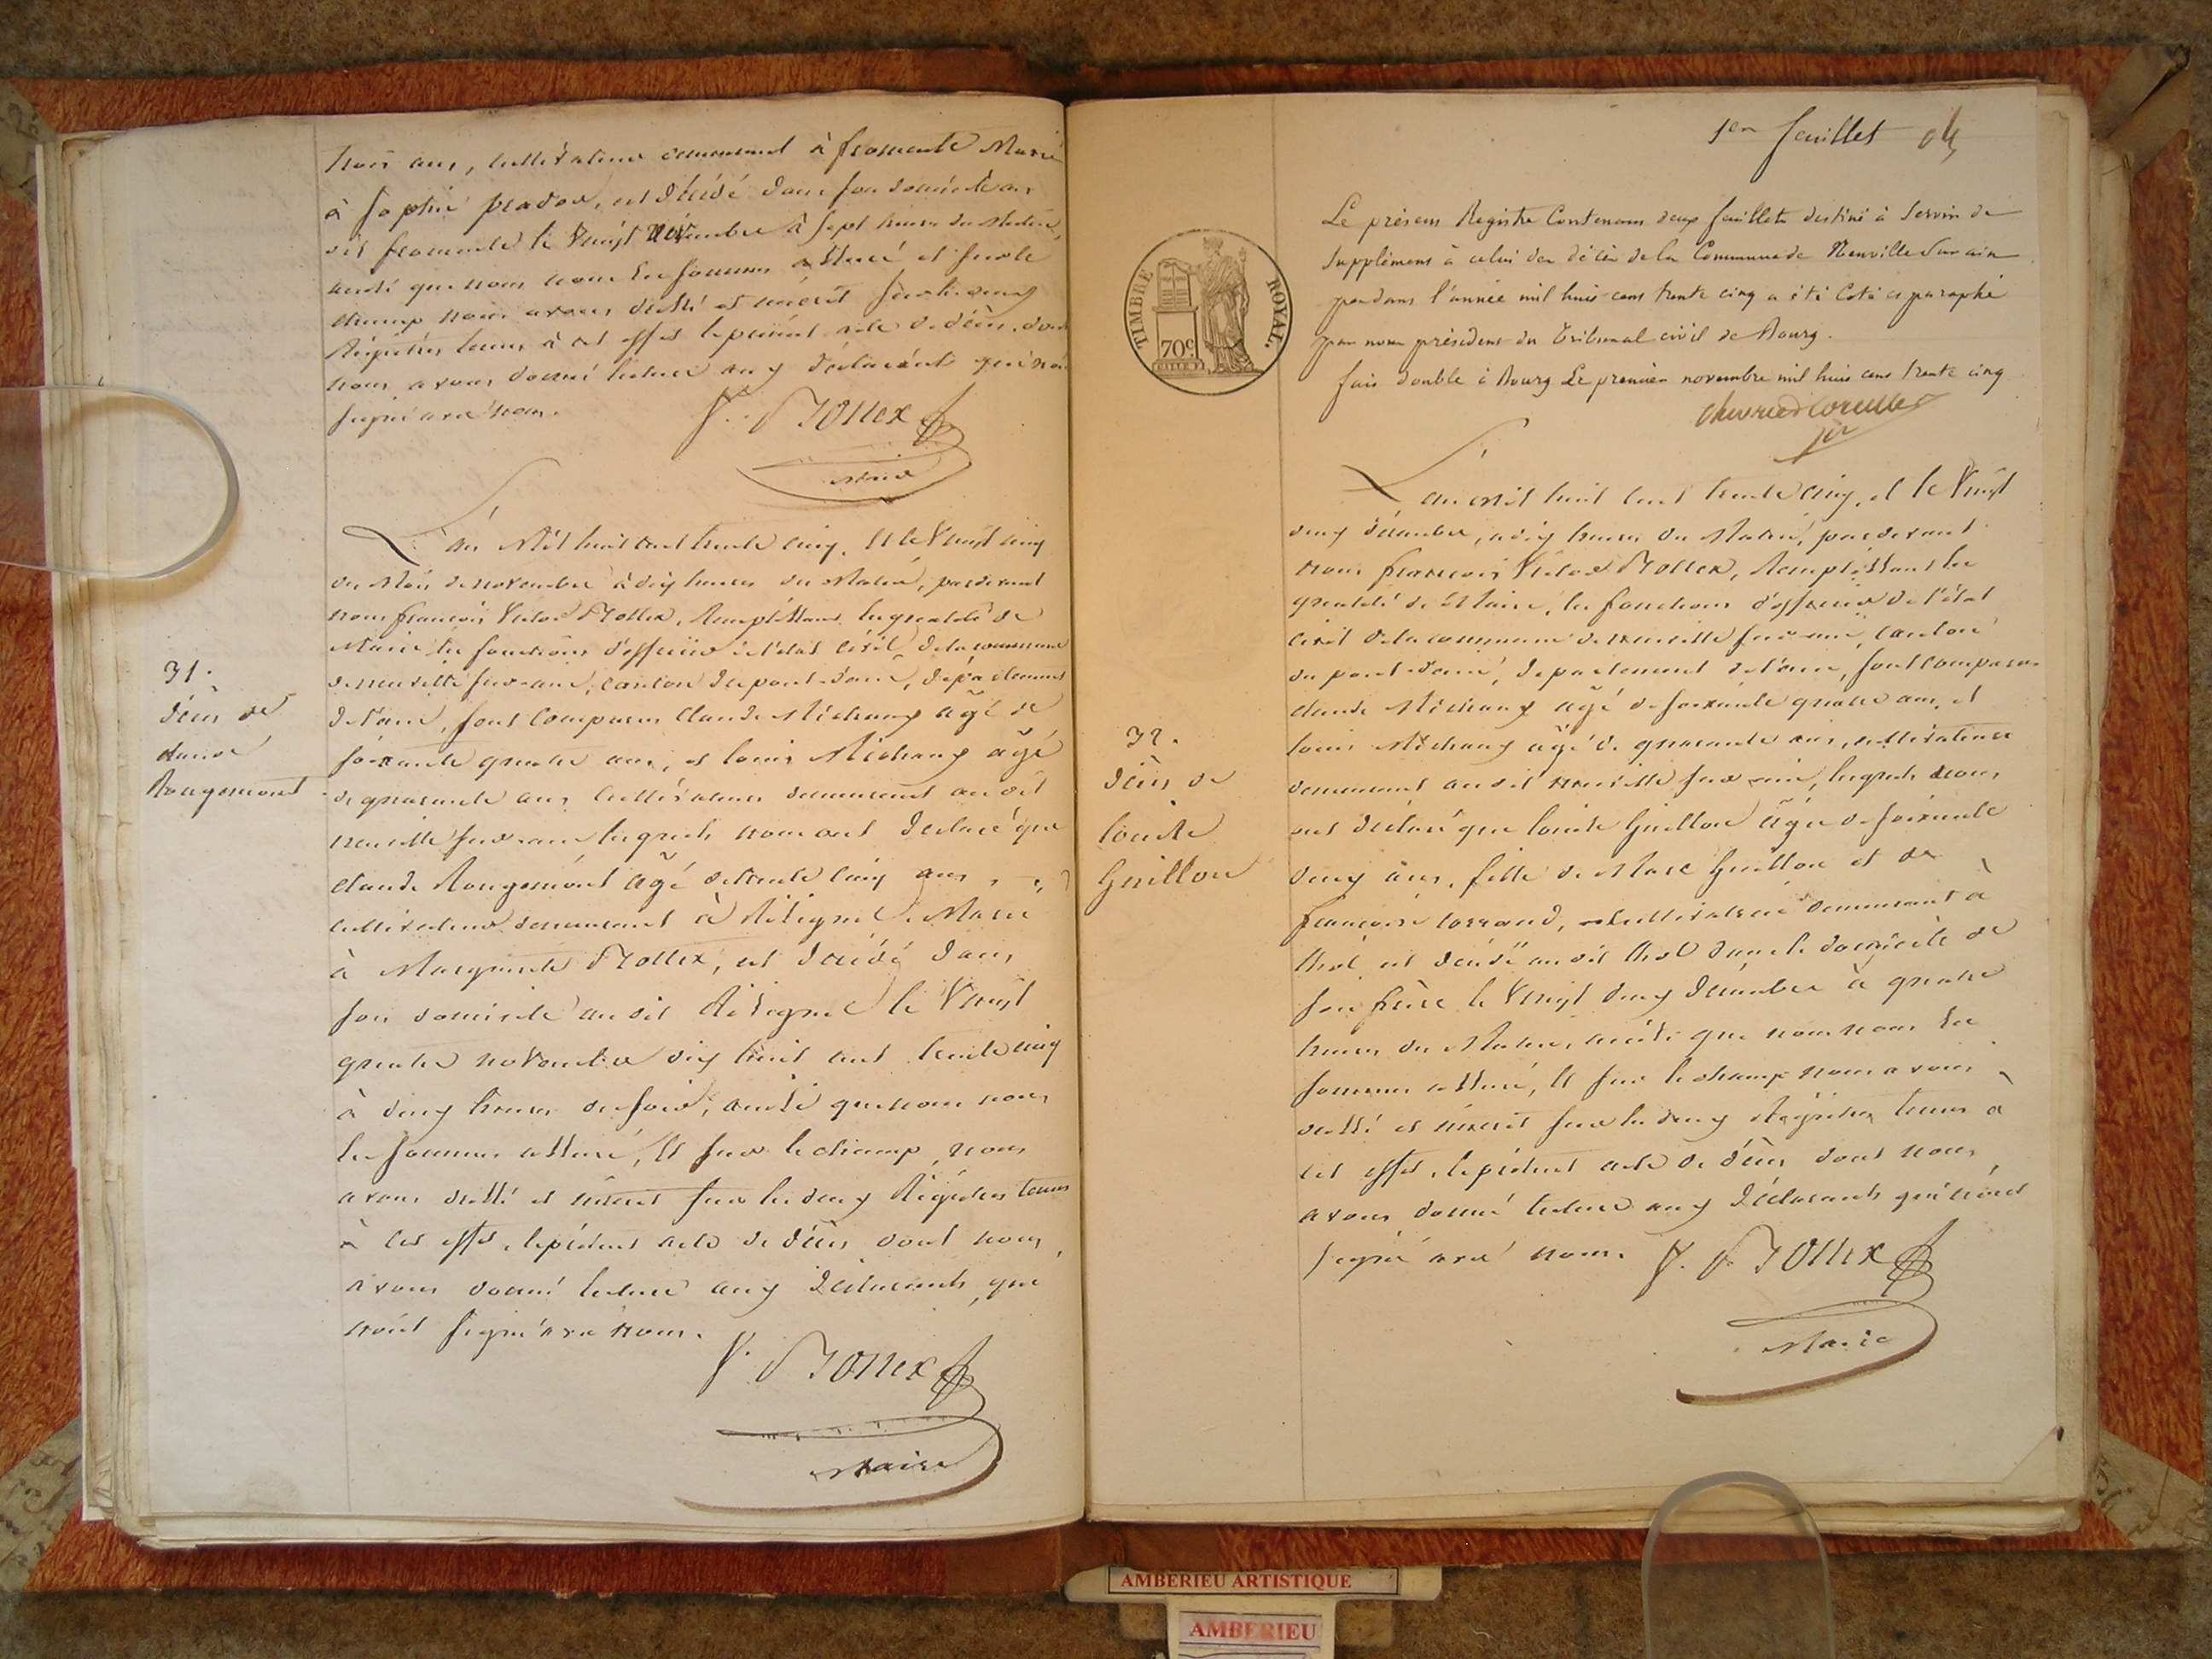 trois ans, cultivateur demeurant à fromente Marié
à Sophie pradon, est décédé dans son domicile au
dit fromente le vingt novembre à sept heures du Matin,
ainsi que nous nous en sommes assuré et sur le
champ nous avons dressé et inscrit sur les deux
Régistres tenus à cet effet le présent acte de décès, dont
nous avons donné lecture aux déclarants qui n'ont
signé avec nous.
Maire
L'an Mil huit cent trente cinq, et le Vingt cinq
du Mois de novembre à dix heures du Matin, pardevant
nous françois Victor Bollex, Remplissant en qualité de
Maire les fonctions d'officier de l'état civil de la commune
de neuville sur ain, canton du pont d'ain, département
de l'ain, sont comparus Claude Michaux agé de
soixante quatre ans, et louis Michaux agé
de quarante ans cultivateurs demeurant au dit
neuville sur ain lesquels nous ont déclaré que
claude Rougemont agé de trente cinq ans
cultivateur demeurant à Résignel Marié
à Marguerite Bollex, est décédé dans
son domicile au dit Résignel le Vingt
quatre novembre dix huit cent trente cinq
à deux heures du soir, ainsi que nous nous
en sommes assuré, Et sur le champ nous
avons dressé et inscrit sur les deux Régistres tenus
à cet effet, le présent acte de décès dont nous
avons donné lecture aux Déclarants, qui
n'ont signé avec nous.
Maire
31.
décès de
claude
Rougemont
1er feuillet
Le présent Registre Contenant deux feuillets destiné à servir de
Supplément à celui des décès de la Commune de Neuville Sur ain
pendant l'année mil huit cent trente cinq a été Coté et paraphé
par nous président du Tribunal civil de Bourg.
fait double à Bourg Le premier novembre mil huit cent trente cinq
TIMBRE ROYAL.
70c
L'an mil huit cent trente cinq, et le Vingt
deux décembre, à dix heures du Matin, pardevant
nous françois Victor Bollex, Remplissant en
qualité de Maire, les fonctions d'officier de l'état
civil de la commune de neuville sur ain, canton
du pont d'ain, département de l'ain, sont comparus
claude Michaux agé de soixante quatre ans, et
louis Michaux agé de quarante ans, cultivateurs
demeurant au dit neuville sur ain, lesquels nous
ont déclaré que louise Guillon agée de soixante
deux ans, fille de Marc Guillon et de
françoise cultivatrice demeurant à
thol est décédée au dit thol dans le domicile de
son frère le Vingt deux décembre à quatre
heures du Matin, ainsi que nous nous en
sommes assuré, Et sur le champ nous avons
dressé et inscrit sur les deux Régistres tenus à
cet effet, le présent acte de décès dont nous
avons donné lecture aux Déclarants qui n'ont
signé avec nous.
Maire
32.
décès de
louise
Guillon
AMBERIEU ARTISTIQUE
AMBERIEU